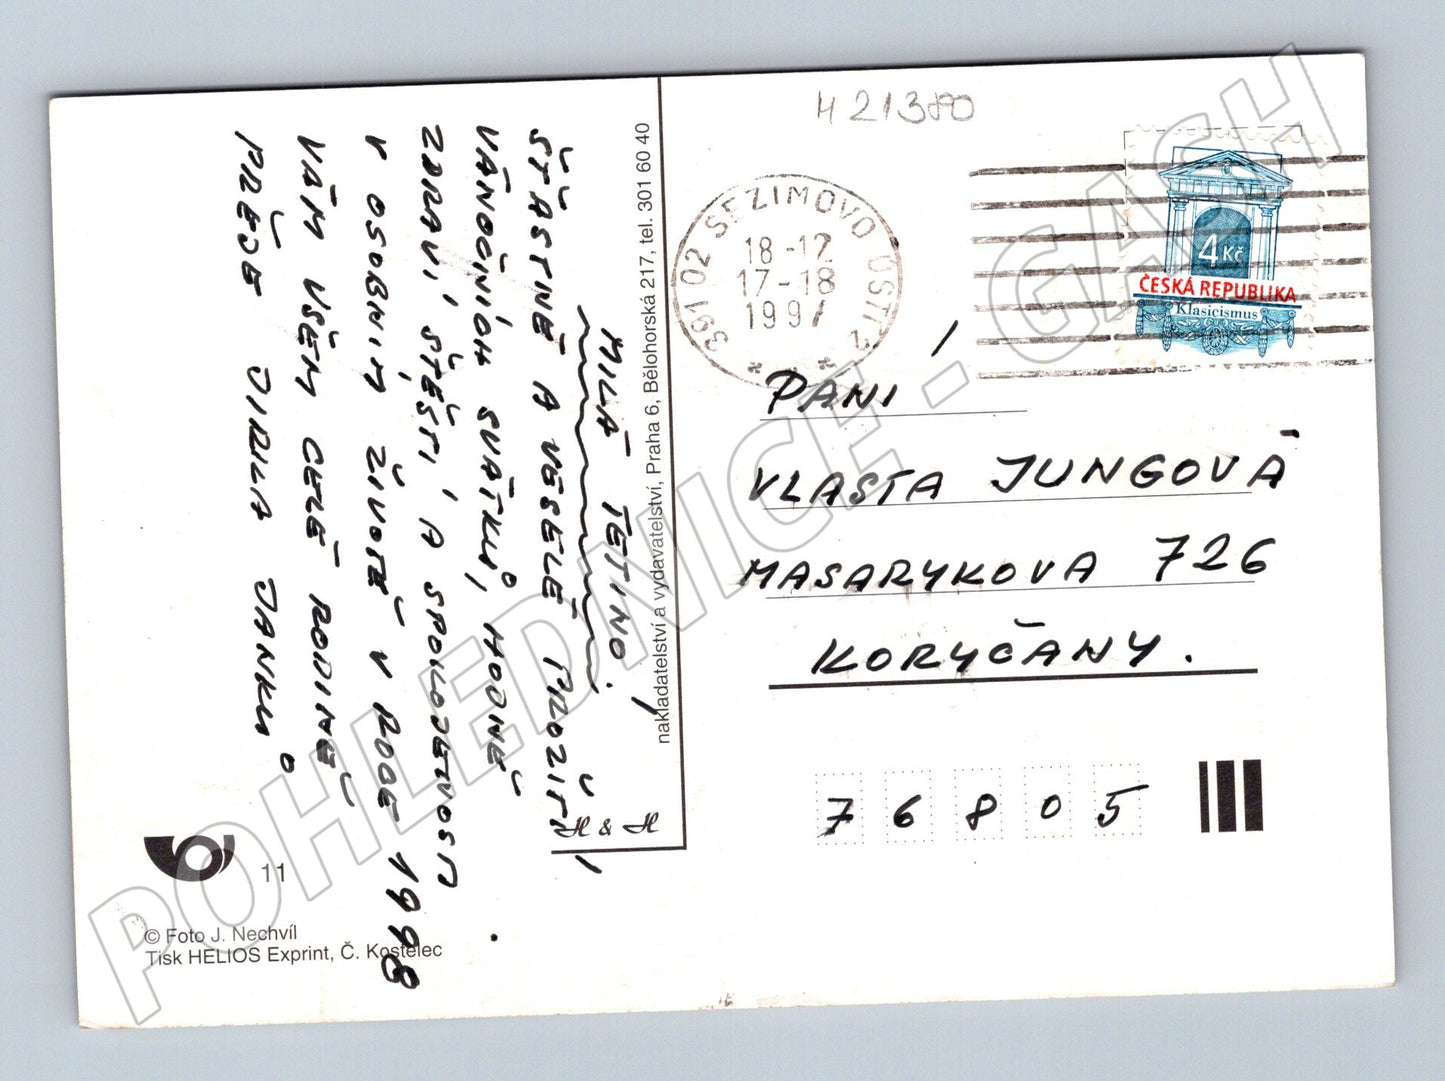 MILÁ TETINO!
ŠŤASTNĚ A VESELÉ PROŽITÍ
VÁNOČNÍCH SVÁTKŮ, HODNĚ
ZDRAVÍ, ŠTĚSTÍ A SPOKOJENOSTI
V OSOBNÍM ŽIVOTĚ V ROCE 1998.
VÁM VŠEM CELÉ RODINĚ
PŘEJE JIRKA JANKŮ
nakladatelství a vydavatelství, Praha 6, Bělohorská 217, tel. 301 60 40
H & H
11
© Foto J. Nechvíl
Tisk HELIOS Exprint, Č. Kostelec
H 21380
391 02 SEZIMOVO ÚSTÍ 2
18-12
17-18
1997
4 Kč
ČESKÁ REPUBLIKA
Klasicismus
PANÍ
VLASTA JUNGOVÁ
MASARYKOVA 726
KORYČANY.
76805
POHLEDNICE - GASH